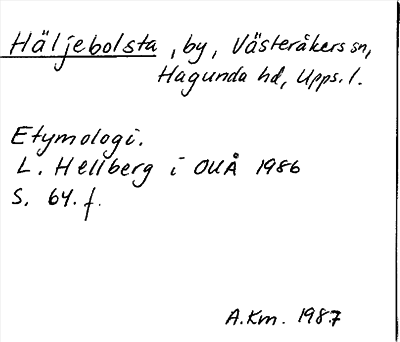 Häljebolsta, by, Västeråkers sn,
Hagunda hd, Upps. l.
Etymologi.
L. Hellberg i OUÅ 1986
S. 64. f.
A.Km. 1987